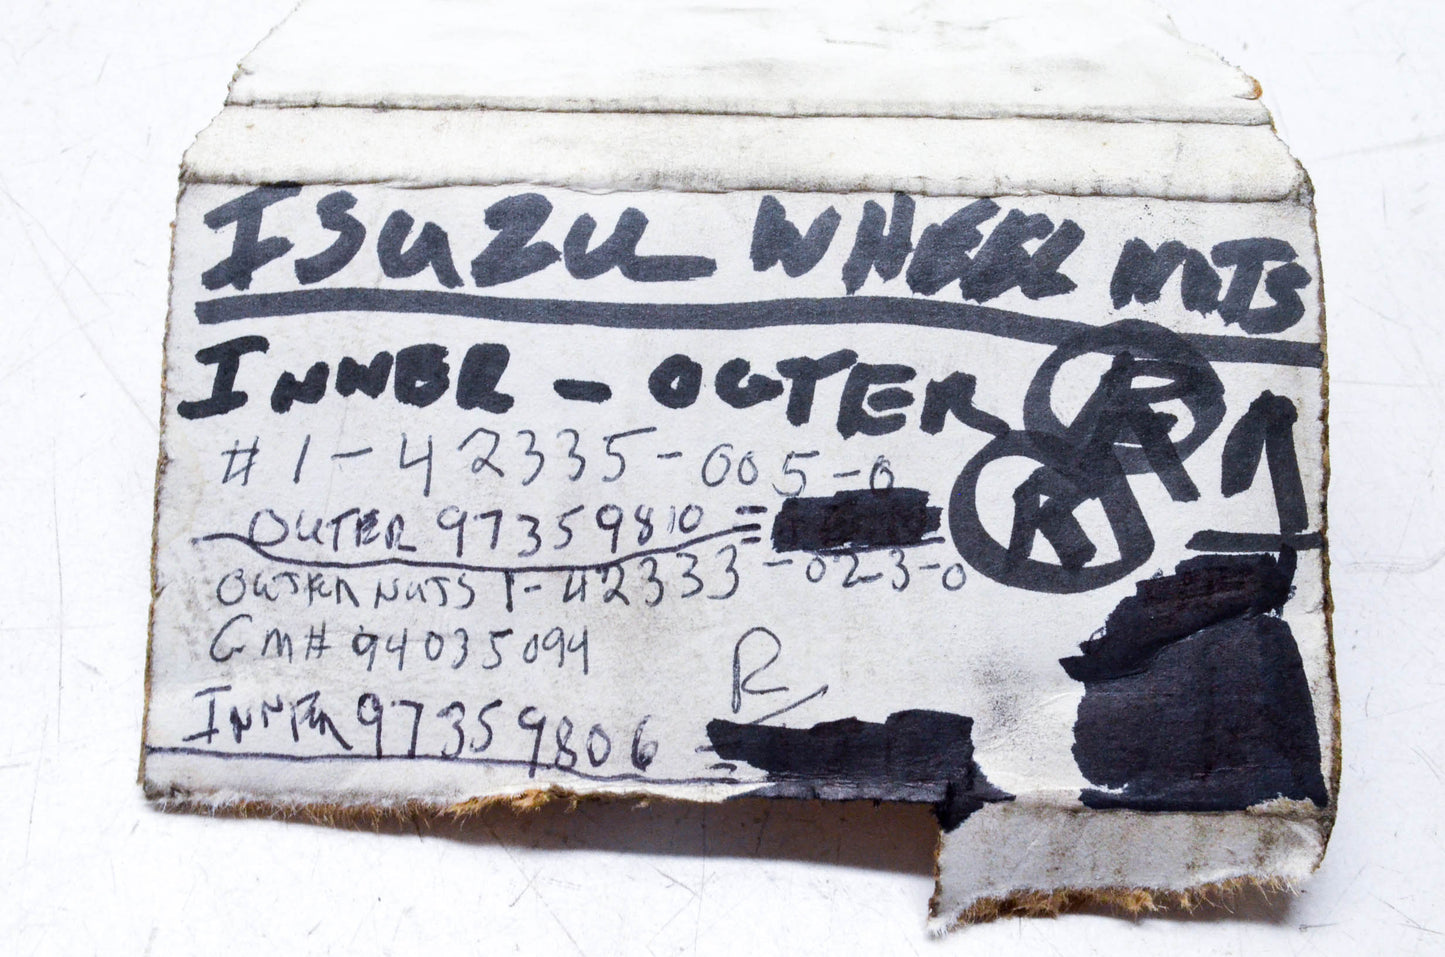 ISUZU WHEEL NUTS
INNER - OUTER R R
#1-42335-005-0
OUTER 97359810 =
OUTER NUTS 1-42333-023-0
GM# 94035094
R
INNER 97359806 =